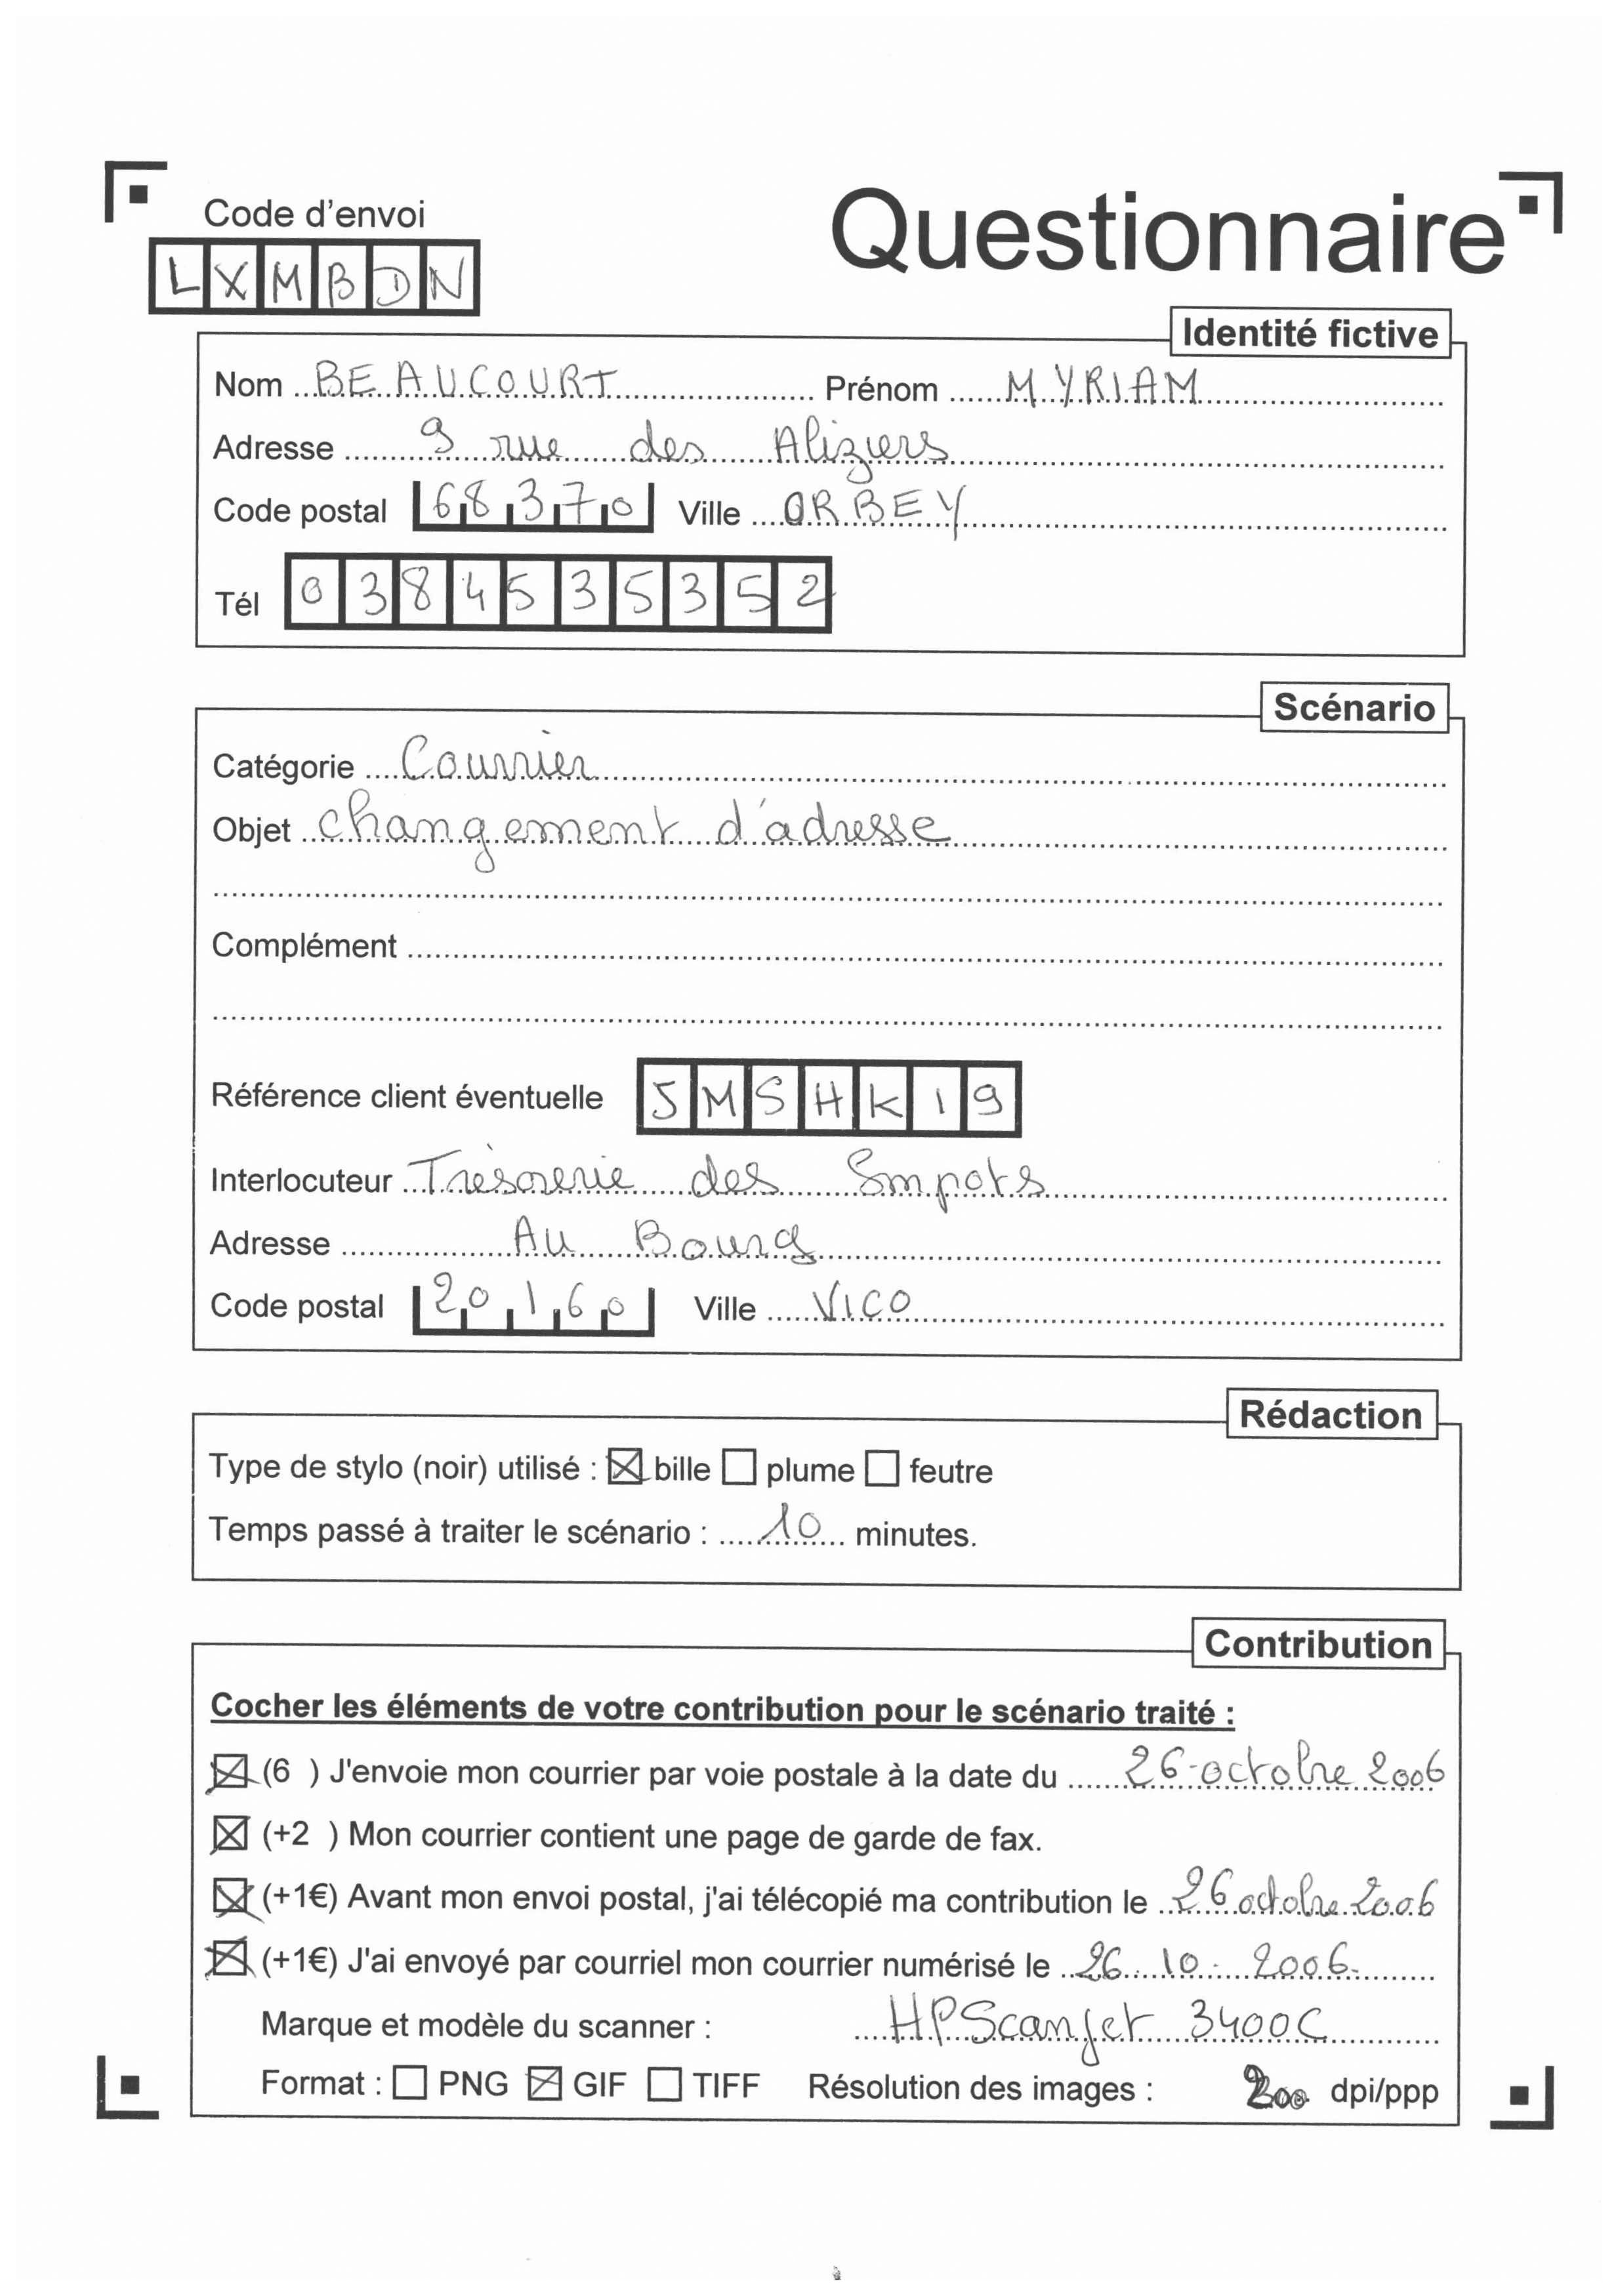 Code d'envoi
Questionnaire
LXMBDN
Identité fictive
Nom BEAUCOURT Prénom MYRIAM
Adresse 9 rue des Aliziers
Code postal 68370 Ville ORBEY
Tél 0384535352
Scénario
Catégorie Courrier
Objet changement d'adresse
Complément
Référence client éventuelle JMSHK19
Interlocuteur Trésorerie des Impots
Adresse Au Bourg
Code postal 20160 Ville VICO
Rédaction
Type de stylo (noir) utilisé : ☒ bille ☐ plume ☐ feutre
Temps passé à traiter le scénario : 10 minutes.
Contribution
Cocher les éléments de votre contribution pour le scénario traité :
☒ (6 ) J'envoie mon courrier par voie postale à la date du 26 octobre 2006
☒ (+2 ) Mon courrier contient une page de garde de fax.
☒ (+1€) Avant mon envoi postal, j'ai télécopié ma contribution le 26 octobre 2006
☒ (+1€) J'ai envoyé par courriel mon courrier numérisé le 26. 10. 2006.
Marque et modèle du scanner : HPScanjet 3400C
Format : ☐ PNG ☒ GIF ☐ TIFF Résolution des images : 200 dpi/ppp